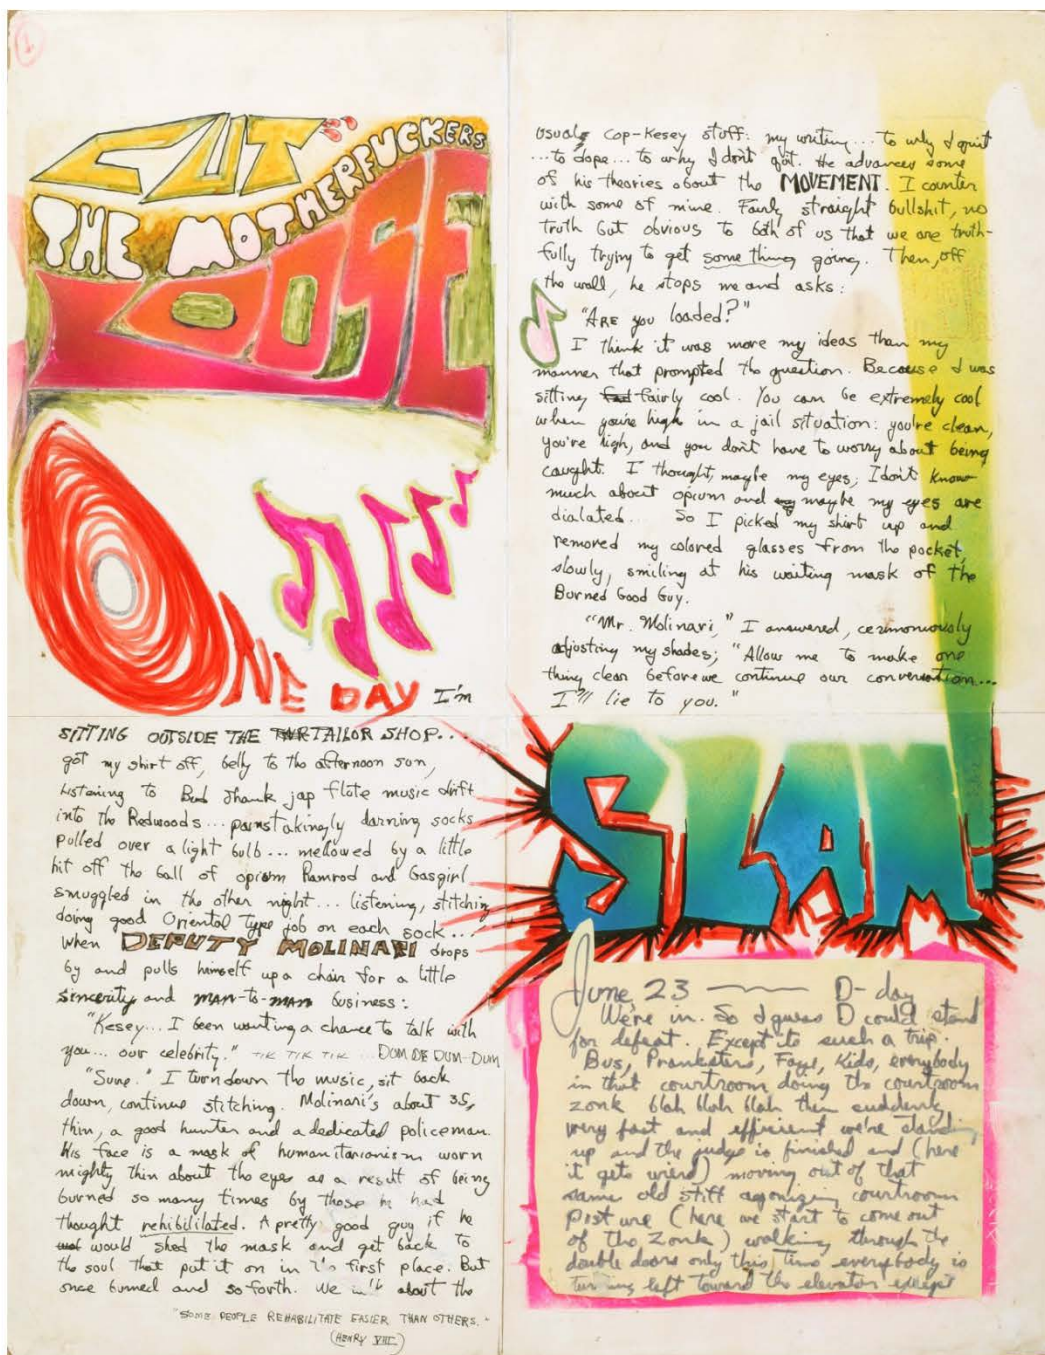 1
CUT
THE MOTHERFUCKERS
LOOSE
ONE DAY I'm
SITTING OUTSIDE THE TAILOR SHOP...
got my shirt off, belly to the afternoon sun,
Listening to Bud Shank jap flote music drift
into the Redwoods... painstakingly darning socks
pulled over a light bulb... mellowed by a little
hit off the ball of opium Ramrod and Gasgirl
smuggled in the other night... listening, stitching
doing good Oriental type job on each sock...
when DEPUTY MOLINARI drops
by and pulls himself up a chair for a little
sincerity and MAN-to-MAN business:
"Kesey... I been wanting a chance to talk with
you... our celebrity." TIK TIK TIK ... DOM DE DUM-DUM
"Sure." I turn down the music, sit back
down, continue stitching. Molinari's about 35,
thin, a good hunter and a dedicated policeman.
His face is a mask of humanitarianism worn
mighty thin about the eyes as a result of being
burned so many times by those he had
thought rehibililated. A pretty good guy if he
would shed the mask and get back to
the soul that put it on in the first place. But
once burned and so forth. We talk about the
"SOME PEOPLE REHABILITATE EASIER THAN OTHERS."
(HENRY VIII)
usual cop-Kesey stuff: my writing... to why I quit
...to dope... to why I don't quit. He advances some
of his theories about the MOVEMENT. I counter
with some of mine. Fairly straight bullshit, no
truth but obvious to both of us that we are truth-
fully trying to get some thing going. Then, off
the wall, he stops me and asks:
"ARE you loaded?"
I think it was more my ideas than my
manner that prompted the question. Because I was
sitting fairly cool. You can be extremely cool
when you're high in a jail situation: you're clean,
you're high, and you don't have to worry about being
caught. I thought, maybe my eyes; I don't know
much about opium and maybe my eyes are
dialated... So I picked my shirt up and
removed my colored glasses from the pocket,
slowly, smiling at his waiting mask of the
Burned Good Guy.
"Mr. Molinari," I answered, cerimoniously
adjusting my shades; "Allow me to make one
thing clear before we continue our conversation...
I'll lie to you."
SLAM!
June 23 — D-day
We're in. So I guess D could stand
for defeat. Except its such a trip.
Bus, Pranksters, Faye, Kids, everybody
in that courtroom doing the courtroom
zonk blah blah blah then suddenly
very fast and efficient we're standing
up and the judge is finished and (here
it gets wierd) moving out of that
same old stiff agonizing courtroom
posture (here we start to come out
of the zonk) walking through the
double doors only this time everybody is
turning left toward the elevator except